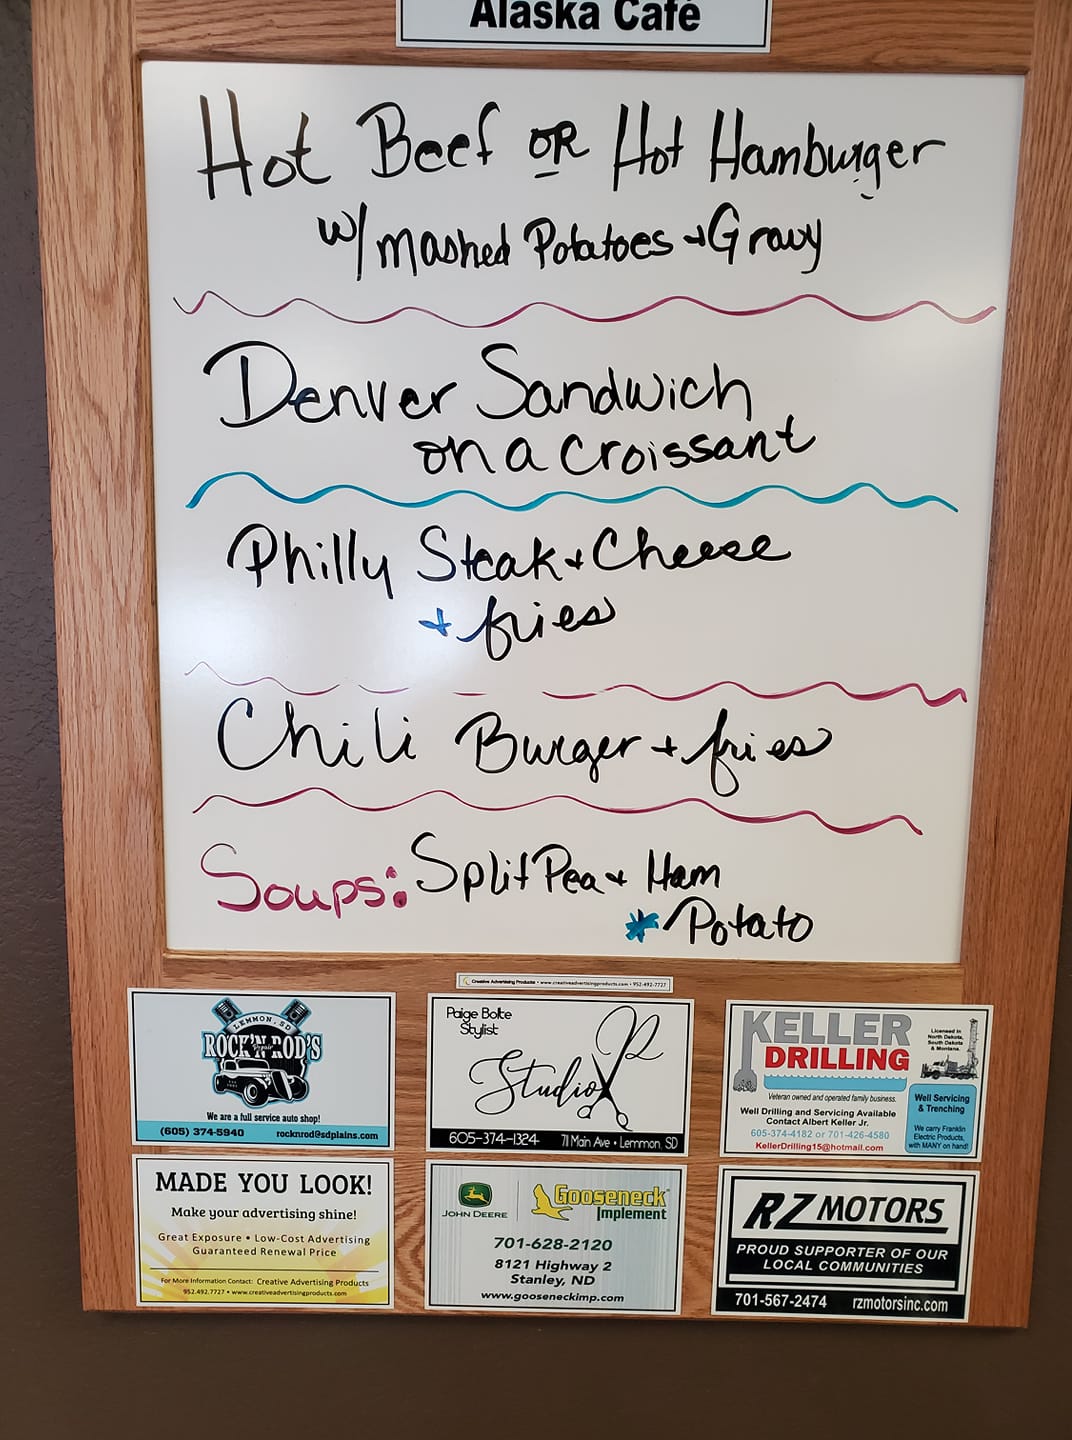 Alaska Café
Hot Beef OR Hot Hamburger
w/ mashed Potatoes + Gravy
Denver Sandwich
on a croissant
Philly Steak + Cheese
+ fries
Chili Burger + fries
Soups: Split Pea + Ham
* Potato
Creative Advertising Products • www.creativeadvertisingproducts.com • 952-492-7727
LEMMON, SD
ROCK'N ROD'S
Repair
We are a full service auto shop!
(605) 374-5940 rocknrod@sdplains.com
Paige Bolte
Stylist
Studio R
605-374-1324 71 Main Ave • Lemmon, SD
KELLER
DRILLING
Licensed in
North Dakota,
South Dakota
& Montana.
Veteran owned and operated family business.
Well Drilling and Servicing Available
Contact Albert Keller Jr.
605-374-4182 or 701-426-4580
KellerDrilling15@hotmail.com
Well Servicing
& Trenching
We carry Franklin
Electric Products,
with MANY on hand!
MADE YOU LOOK!
Make your advertising shine!
Great Exposure • Low-Cost Advertising
Guaranteed Renewal Price
For More Information Contact: Creative Advertising Products
952.492.7727 • www.creativeadvertisingproducts.com
JOHN DEERE
Gooseneck
Implement
701-628-2120
8121 Highway 2
Stanley, ND
www.gooseneckimp.com
RZ MOTORS
PROUD SUPPORTER OF OUR
LOCAL COMMUNITIES
701-567-2474 rzmotorsinc.com